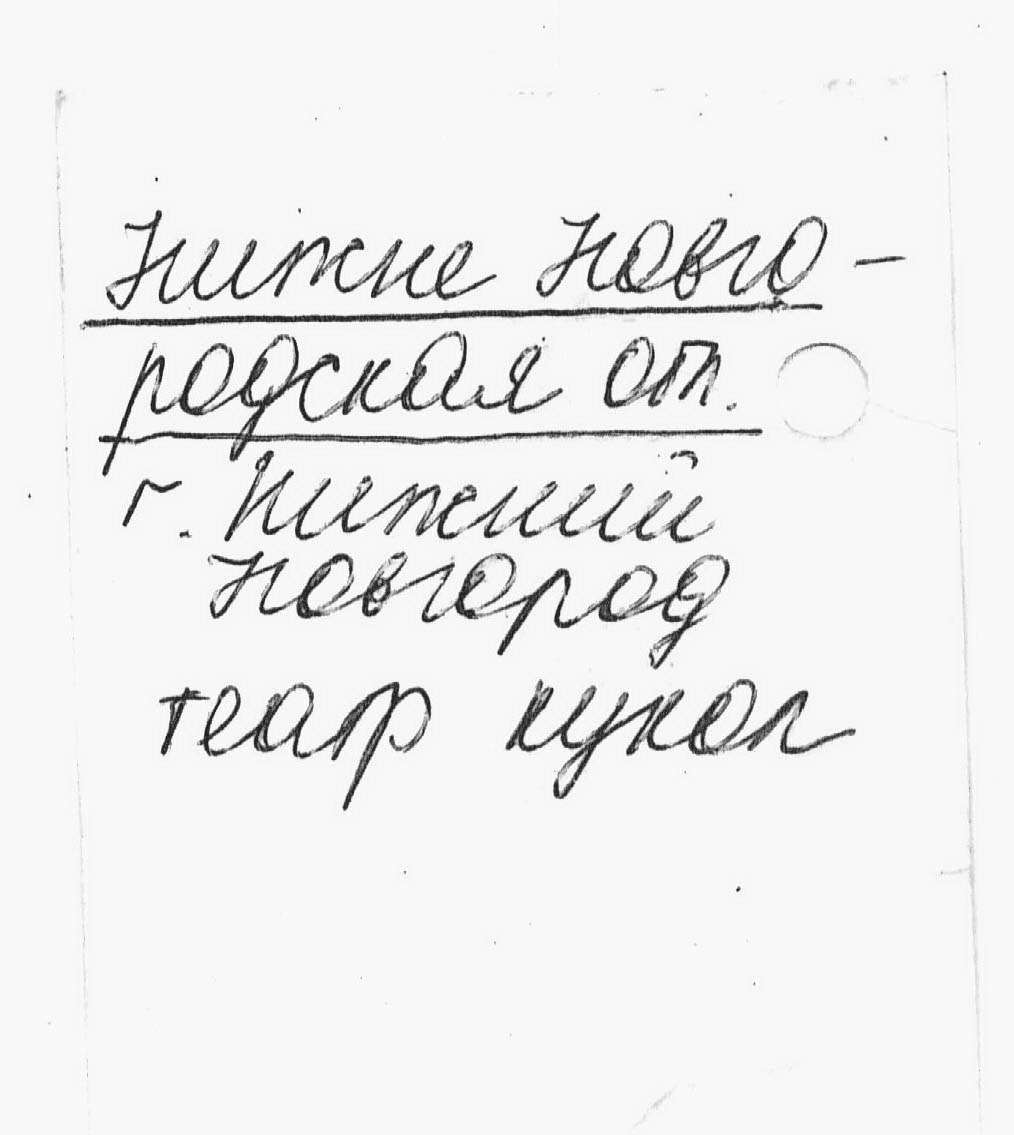 Нижне Новго-
родская от.
г. Нижний
Новгород
театр кукол